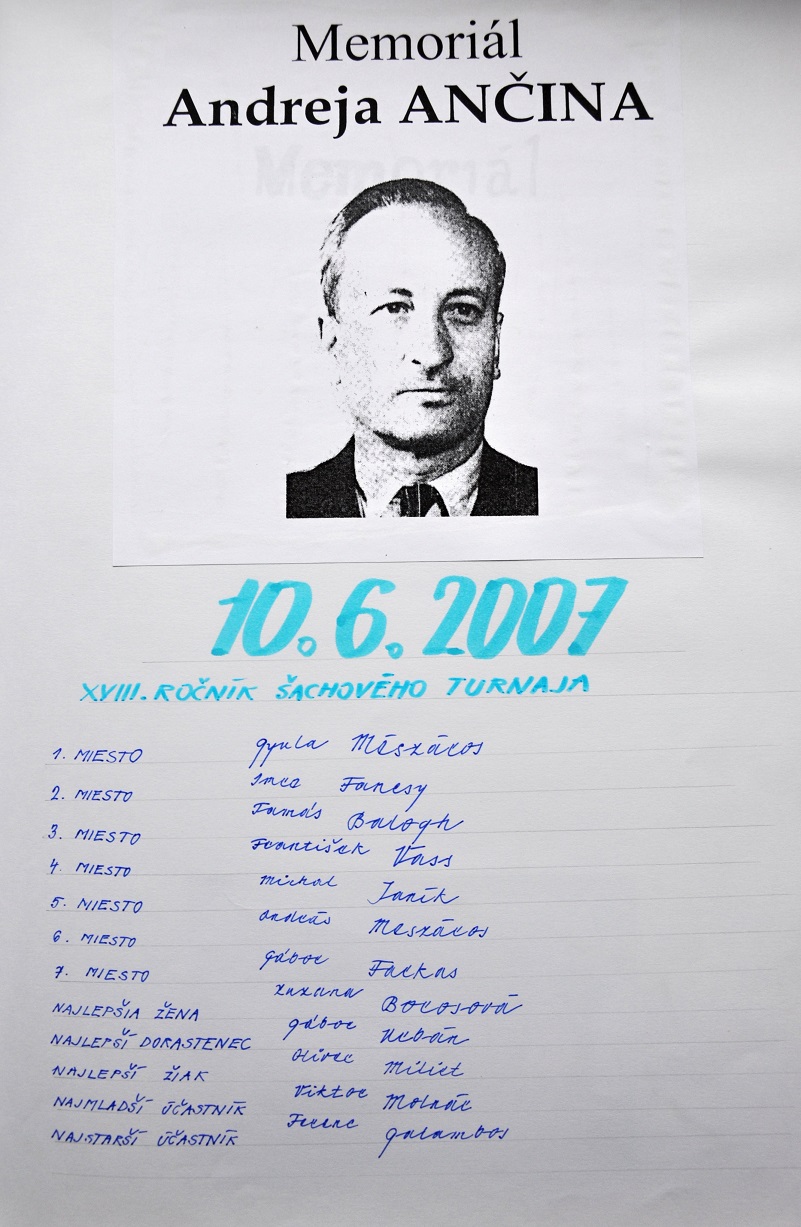 Memoriál
Andreja ANČINA
10.6.2007
XVIII. ROČNÍK ŠACHOVÉHO TURNAJA
1. MIESTO Gyula Mészáros
2. MIESTO Imre Fancsy
3. MIESTO Tamás Balogh
4. MIESTO František Vass
5. MIESTO Michal Janík
6. MIESTO András Mészáros
7. MIESTO Gábor Farkas
NAJLEPŠIA ŽENA Zuzana Borosová
NAJLEPŠÍ DORASTENEC Gábor Urbán
NAJLEPŠÍ ŽIAK Oliver
NAJMLADŠÍ ÚČASTNÍK Viktor Molnár
NAJSTARŠÍ ÚČASTNÍK Ferenc Galambos